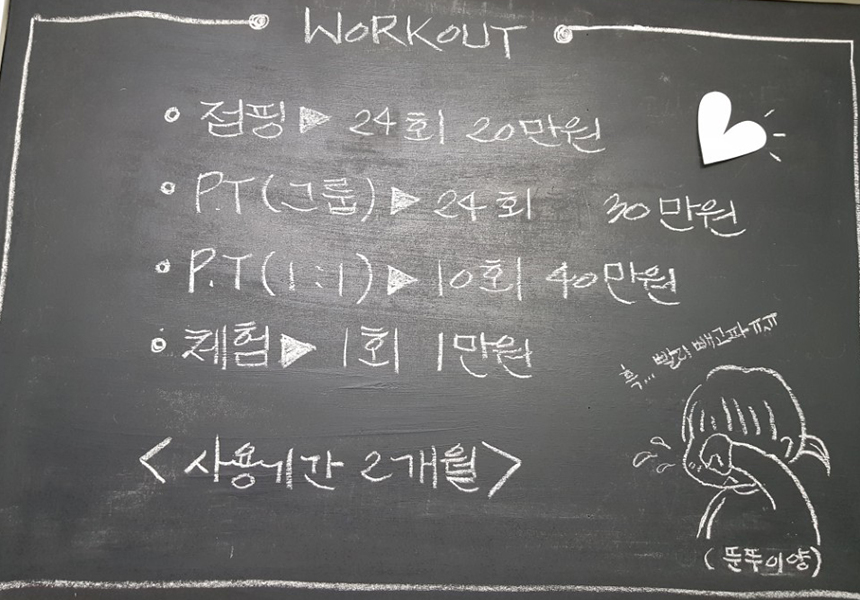 WORKOUT
점핑▶ 24회 20만원
P.T(그룹)▶ 24회 30만원
P.T(1:1)▶ 10회 40만원
체험▶ 1회 1만원
<사용기간 2개월>
흑... 빨리 빼고파 ㅠㅠ
(뚠뚜이양)